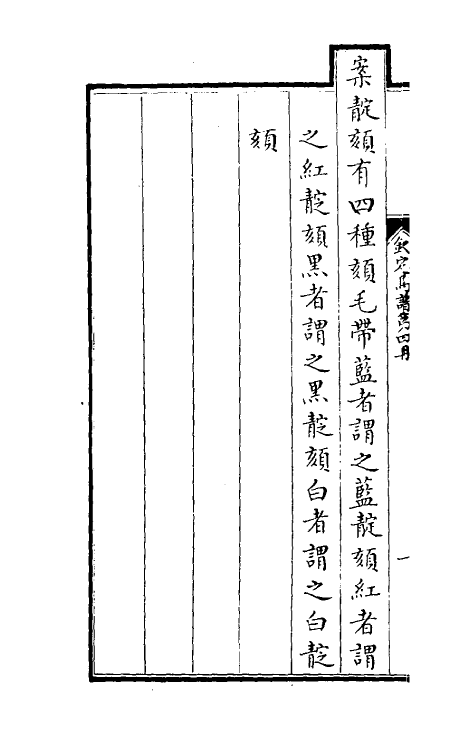 案靛頦有四種頦毛帶藍者謂之藍靛頦紅者謂
之紅靛頦黑者謂之黑靛頦白者謂之白靛
頦
一